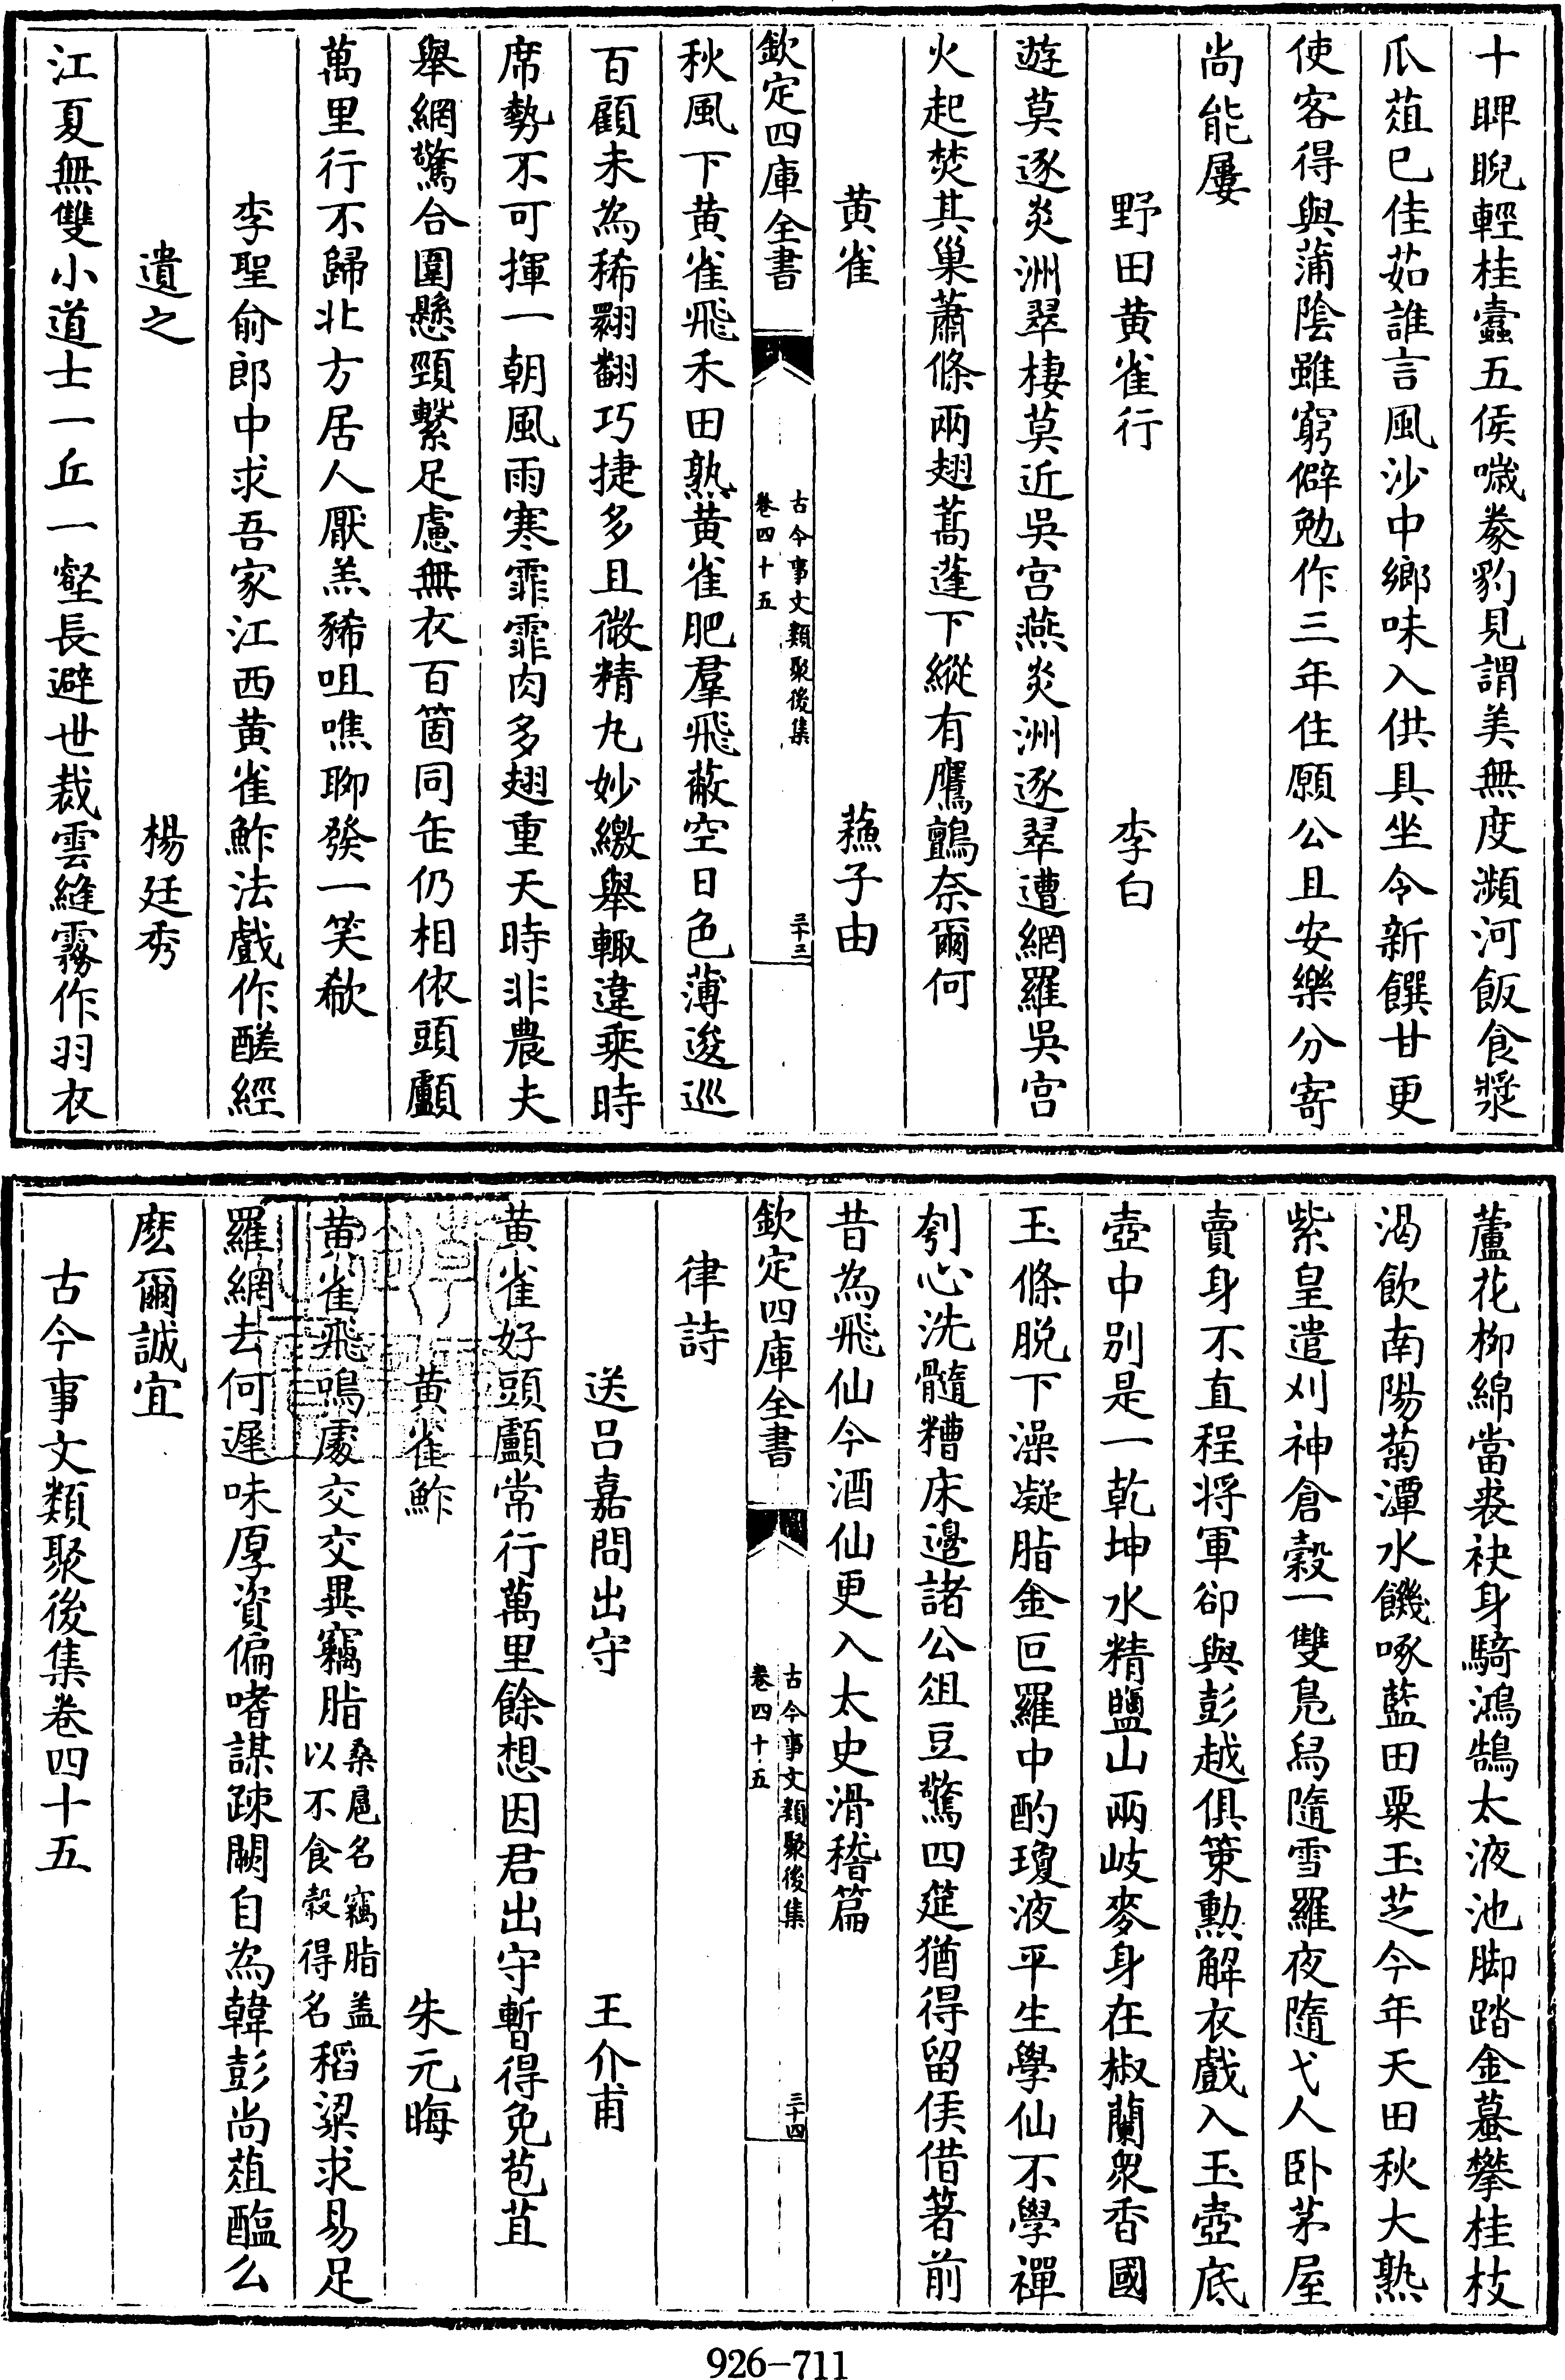 十睥睨輕桂蠹五侯噦豢豹見謂美無度瀕河飯食漿
瓜葅已佳茹誰言風沙中鄉味入供具坐令新饌甘更
使客得與蒲陰雖窮僻勉作三年住願公且安樂分寄
尚能屢
野田黄雀行 李白
遊莫逐炎洲翠棲莫近吳宫燕炎洲逐翠遭網羅吳宫
火起焚其巢蕭條兩翅蒿蓬下縱有鷹鸇奈爾何
黄雀 蘓子由
欽定四庫全書 古今事文類聚後集 卷四十五 三十三
秋風下黄雀飛禾田熟黄雀肥羣飛蔽空日色薄逡巡
百顧未為稀翾翻巧捷多且微精丸妙繳舉輙違乘時
席勢不可揮一朝風雨寒霏霏肉多翅重天時非農夫
舉網驚合圍懸頸繫足慮無衣百箇同缶仍相依頭顱
萬里行不歸北方居人厭羔豨咀嚼聊發一笑欷
李聖俞郎中求吾家江西黄雀鮓法戲作醝經
遺之 楊廷秀
江夏無雙小道士一丘一壑長避世裁雲縫霧作羽衣
蘆花栁綿當裘袂身騎鴻鵠太液池脚踏金蟇攀桂枝
渴飲南陽菊潭水饑啄藍田粟玉芝今年天田秋大熟
紫皇遣刈神倉榖一雙鳬舄隨雪羅夜隨弋人卧茅屋
賣身不直程將軍卻與彭越俱䇿勲解衣戲入玉壺底
壺中别是一乾坤水精鹽山兩岐麥身在椒蘭衆香國
玉條脱下澡凝脂金叵羅中酌瓊液平生學仙不學禪
刳心洗髓糟床邊諸公俎豆驚四筵猶得留侯借箸前
昔為飛仙今酒仙更入太史滑稽篇
欽定四庫全書 古今事文類聚後集 卷四十五 三十四
律詩
送吕嘉問出守 王介甫
黄雀好頭顱常行萬里餘想因君出守暫得免苞苴
黄雀鮓 朱元晦
黄雀飛鳴處交交異竊脂桑扈名竊脂盖以不食榖得名稻粱求易足
羅網去何遲味厚資偏嗜謀疎闕自為韓彭尚葅醢么
麽爾誠宜
古今事文類聚後集卷四十五
926-711